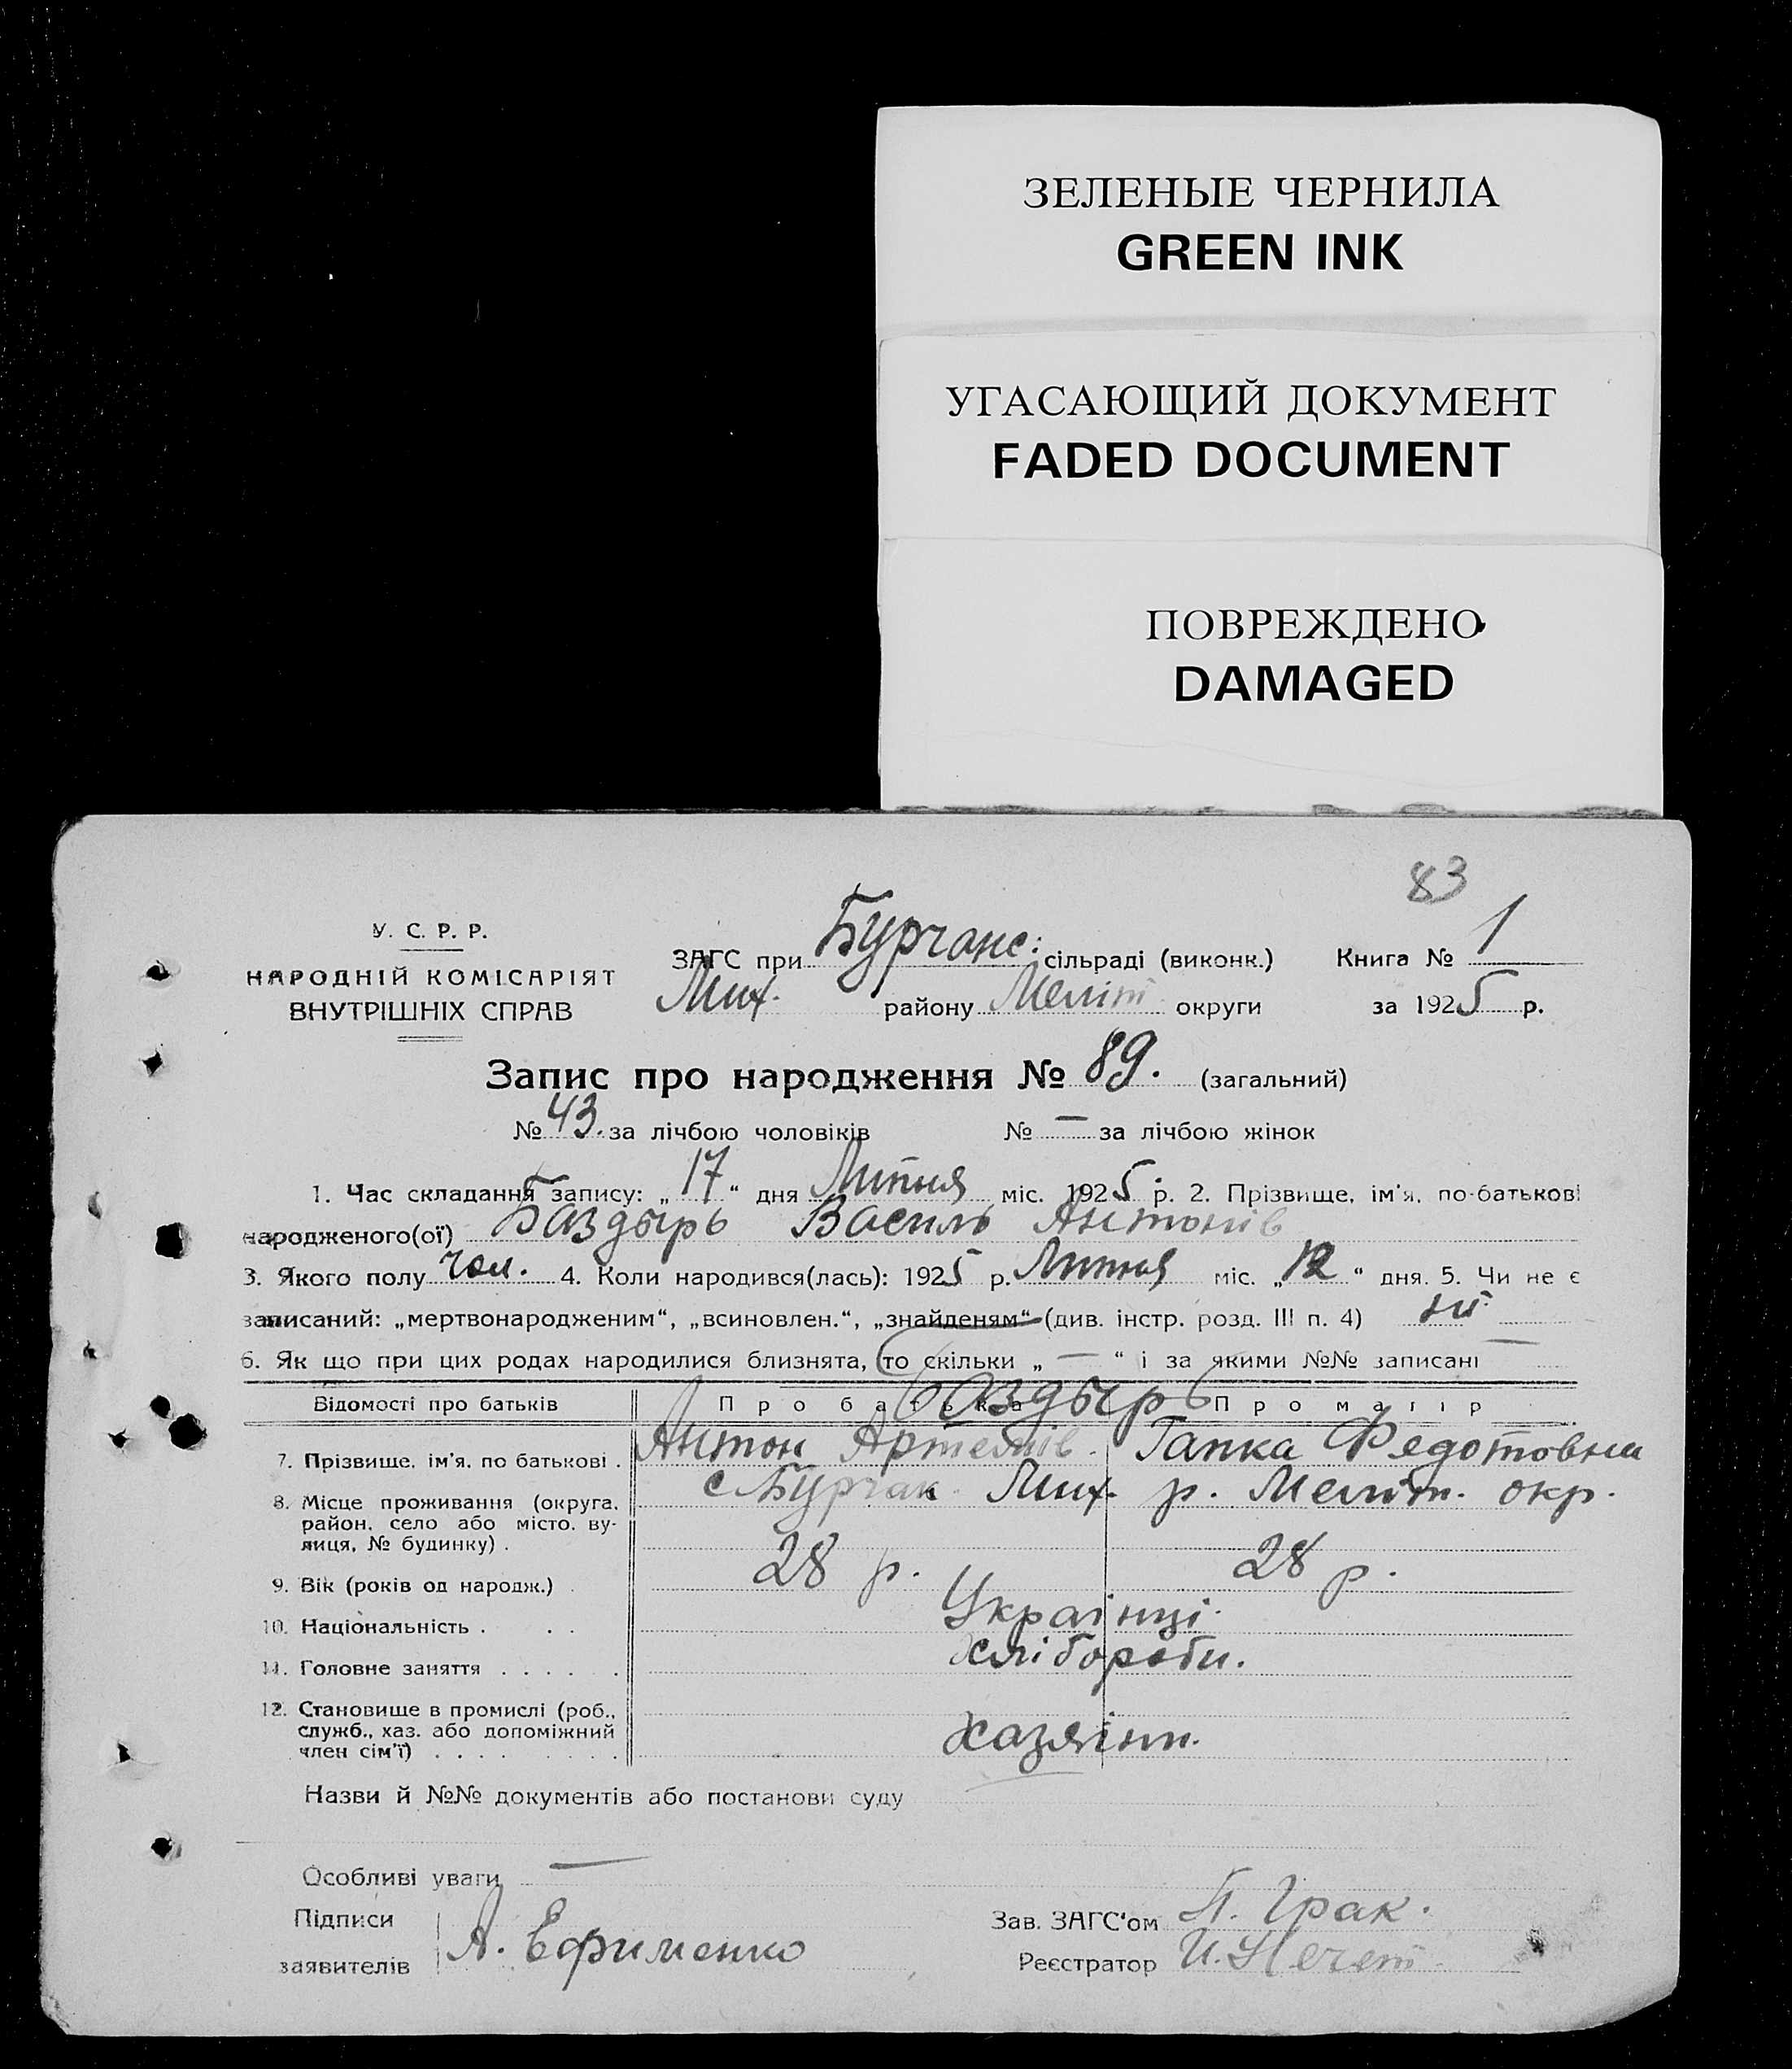 ЗЕЛЕНЫЕ ЧЕРНИЛА
GREEN INK
УГАСАЮЩИЙ ДОКУМЕНТ
FADED DOCUMENT
ПОВРЕЖДЕНО
DAMAGED
83
У. С. Р. Р.
НАРОДНІЙ КОМІСАРІЯТ
ВНУТРІШНІХ СПРАВ
ЗАГС при Бурчанс: сільраді (виконк.) Книга № 1
Мих. району Меліт округи за 1925 р.
Запис про народження № 89. (загальний)
№ 43. за лічбою чоловіків № — за лічбою жінок
1. Час складання запису: „17“ дня Липня міс. 1925 р. 2. Прізвище, ім'я, по-батькові
народженого(ої) Баздырь Василь Антонів
3. Якого полу чол. 4. Коли народився(лась): 1925 р. Липня міс. „12“ дня. 5. Чи не є
записаний: „мертвонародженим“, „всиновлен.“, „знайденям“ (див. інстр. розд. III п. 4) ні
6. Як що при цих родах народилися близнята, то скільки „ — “ і за якими №№ записані —
Відомості про батьків Про батька Про матір
Баздырь
7. Прізвище, ім'я, по батькові . Антон Артемів. Гапка Федотовна
8. Місце проживання (округа, район, село або місто, вулиця, № будинку) . с Бурчак Мих. р. Меліт. окр.
9. Вік (років од народж.) . 28 р. 28 р.
10. Національність . . . Українці.
11. Головне заняття . . . . . . хлібороби.
12. Становище в промислі (роб., служб., хаз. або допоміжний член сім'ї) . . . . хазяїни.
Назви й №№ документів або постанови суду
Особливі уваги —
Підписи заявителів А. Ефименко
Зав. ЗАГС'ом П. Грак.
Реєстратор И. Нечет